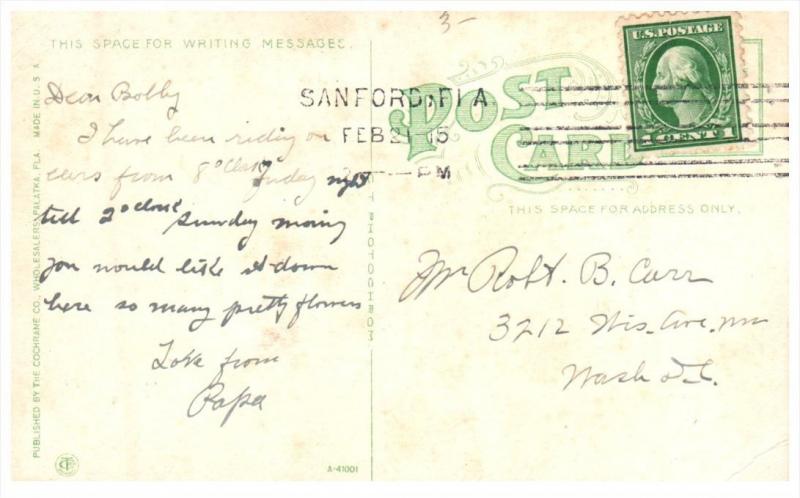 3-
THIS SPACE FOR WRITING MESSAGES.
Dear Bobby
I have been riding on
cars from 8 o'clock Friday night
till 2 o'clock Sunday morning
you would like it down
here so many pretty flowers
Love from
Papa
PUBLISHED BY THE COCHRANE CO., WHOLESALERS, PALATKA, FLA. MADE IN U.S.A
A-41001
PHOTOCHROM
SANFORD, FLA.
FEB 21 15
PM
POST
CARD
U.S. POSTAGE
1 CENT 1
THIS SPACE FOR ADDRESS ONLY.
Mr Robt. B. Carr
3212 Wis. Ave. NW
Wash D.C.